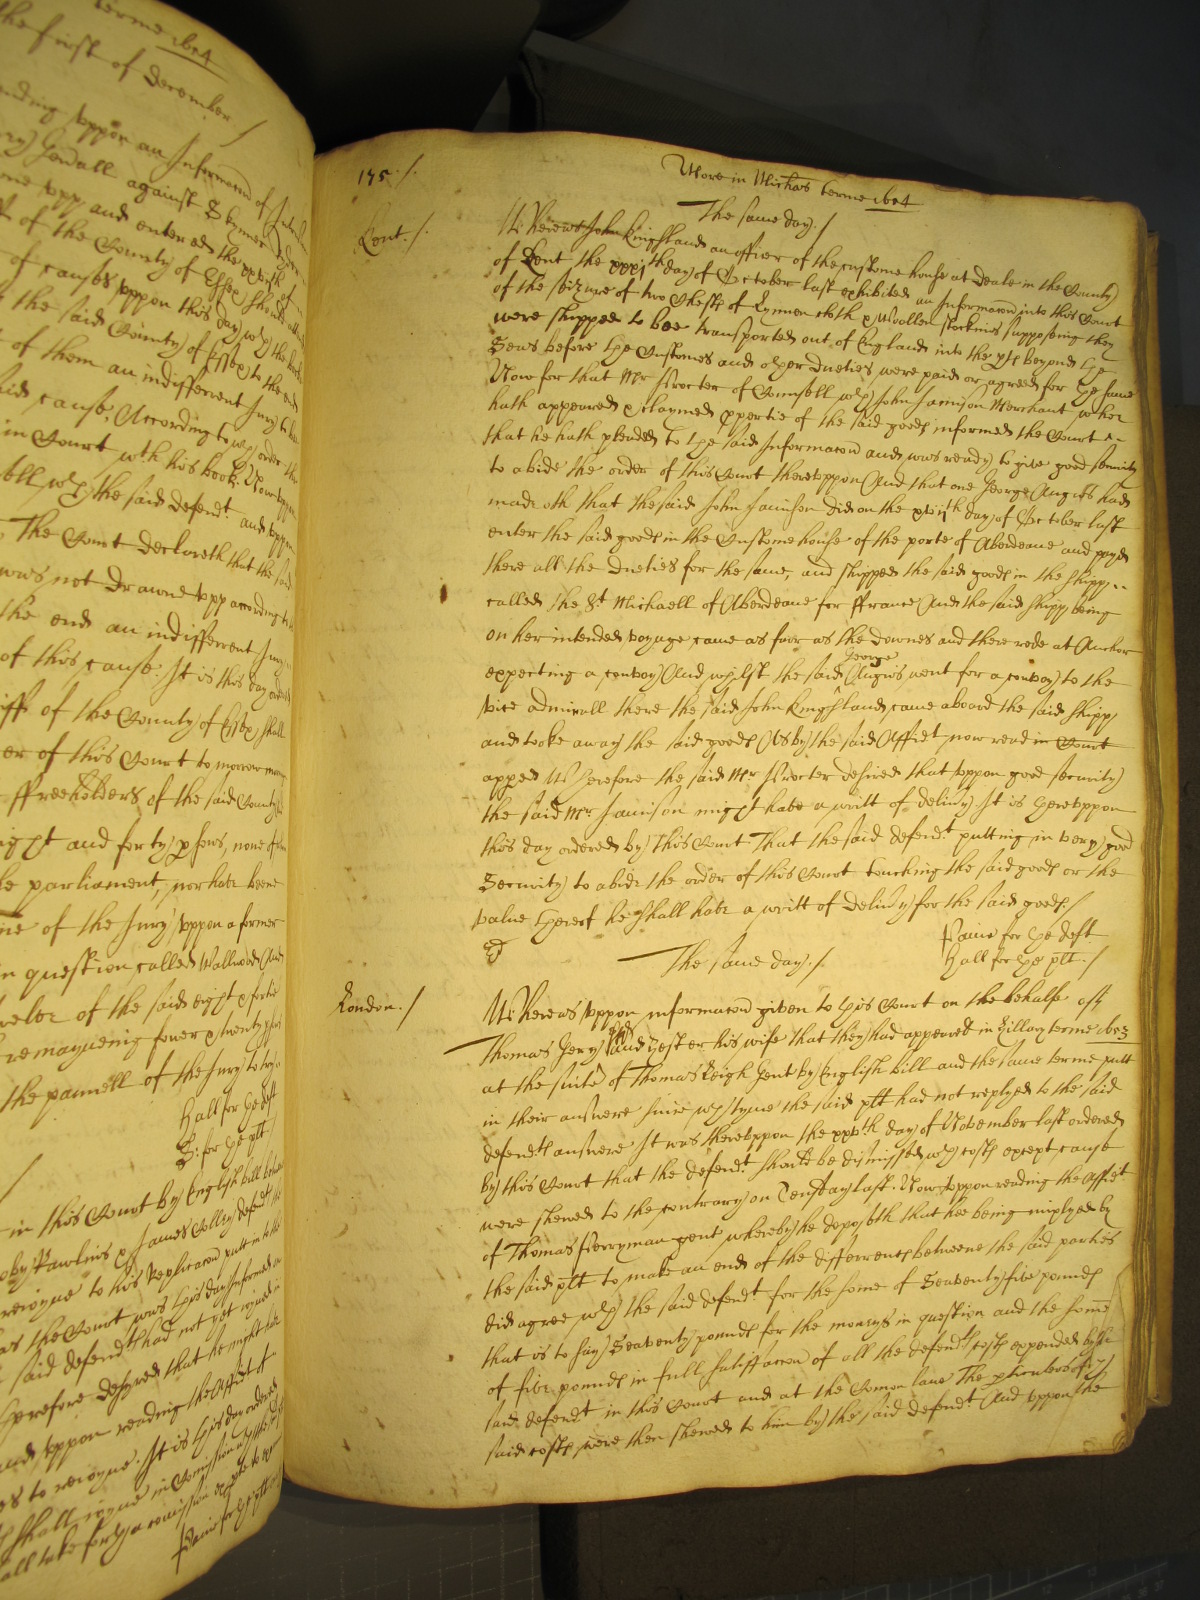 terme 1654
the first of December /
nding uppon an Informacon of
ry Gewall against
one upp and entered the xxvith of
of the County of Essex should
of causes uppon this day wch the
the said County of Essex to the end
of them an indifferent Jury to
said cause, According to wch order the
in Court wth his book. Now uppon
sell wth the said defendt. and uppon
The Court declareth that the said
was not drawne upp according to
the end an indifferent Jury
of this cause. It is this day ordered
iff of the County of Essex shall
er of this Court to morrow morning
ffreeholders of the said County
ight and forty psons, none of
le parliament, nor have beene
ne of the Jury uppon a former
in question called Wallwood And
welve of the said eight & fortie
remayneing fower & twenty psons
the pannell of the Jury to try
Hall for ye deft
S: for ye plt /
in this Court by English bill
by Rawlins & James Colley defendts
reioyne to his Replicacon putt in to
as the Court was this day Informed
said defendts had not yet ioyned in
therefore desyred that he might have
and uppon reading the Affidt of
es to reioyne. It is this day ordered
shall ioyne in Comission wth
all take forth a comission
175 /.
More in Michas terme 1654
The same day. /
Kent. /.
Whereas John Kingsland an officer of the custome house at Deale in the County
of Kent the xxxjth day of October last exhibited an Informacon into this Court
of the seizure of two Chests of Lynnen cloth & Woollen stockins supposeing they
were shipped to bee transported out of England into the pts beyond the
Seas before the Customes and other Dueties were paid or agreed for the same
Now for that Mr Procter of Councell wth John Jamison Merchant who
hath appeared & claymed pperty of the said goods informed the Court
that he hath pleaded to the said Informacon and was ready to give good security
to abide the order of this Court thereuppon And that one George Anguis had
made oth that the said John Jamison did on the xviijth day of October last
enter the said goods in the Custome house of the porte of Aberdeane and payd
there all the Dueties for the same, and shipped the said goods in the shipp
called the St Michaell of Aberdeane for ffrance And the said shipp being
on her intended voyage came as farr as the Downes and there rode at Anchor
expecting a convoy And whilst the said George Anguis went for a convoy to the
vice admirall there the said John Kingsland came aboard the said shipp
and tooke away the said goods As by the said Affidt now read in Court
appeد Wherefore the said Mr Procter desired that uppon good security
the said Mr Jamison might have a writt of delivy It is hereuppon
this day ordered by this Court That the said defendt putting in very good
Security to abide the order of this Court touching the said goods or the
value thereof he shall have a writt of delivy for the said goods. /
Payne for the deft
Hall for the plt. /
The same day. /.
London. /
Whereas uppon informacon given to this Court on the behalfe of
Thomas and Hester his wife that they had appeared in Hillary terme 1653
at the suite of Thomas Leigh Gent by English bill and the same terme putt
in their answere since wch tyme the said plt had not replyed to the said
defendts answere It was thereuppon the xxvth day of November last ordered
by this Court that the defendt should be dismissed wth costs except cause
were shewed to the contrary on Tewsday last. Now uppon reading the Affidt
of Thomas fferryman gent whereby he deposeth that hee being imployed by
the said plt to make an end of the differences betweene the said parties
did agree wth the said defendt for the some of Seaventy five pounds
that is to say Seaventy pounds for the moneys in question and the some
of five pounds in full satisfaccon of all the defendts costs expended by the
said defendt in this Court and at the Comon lawe The pticulers of wch
said costs were then shewed to him by the said defendt And uppon the